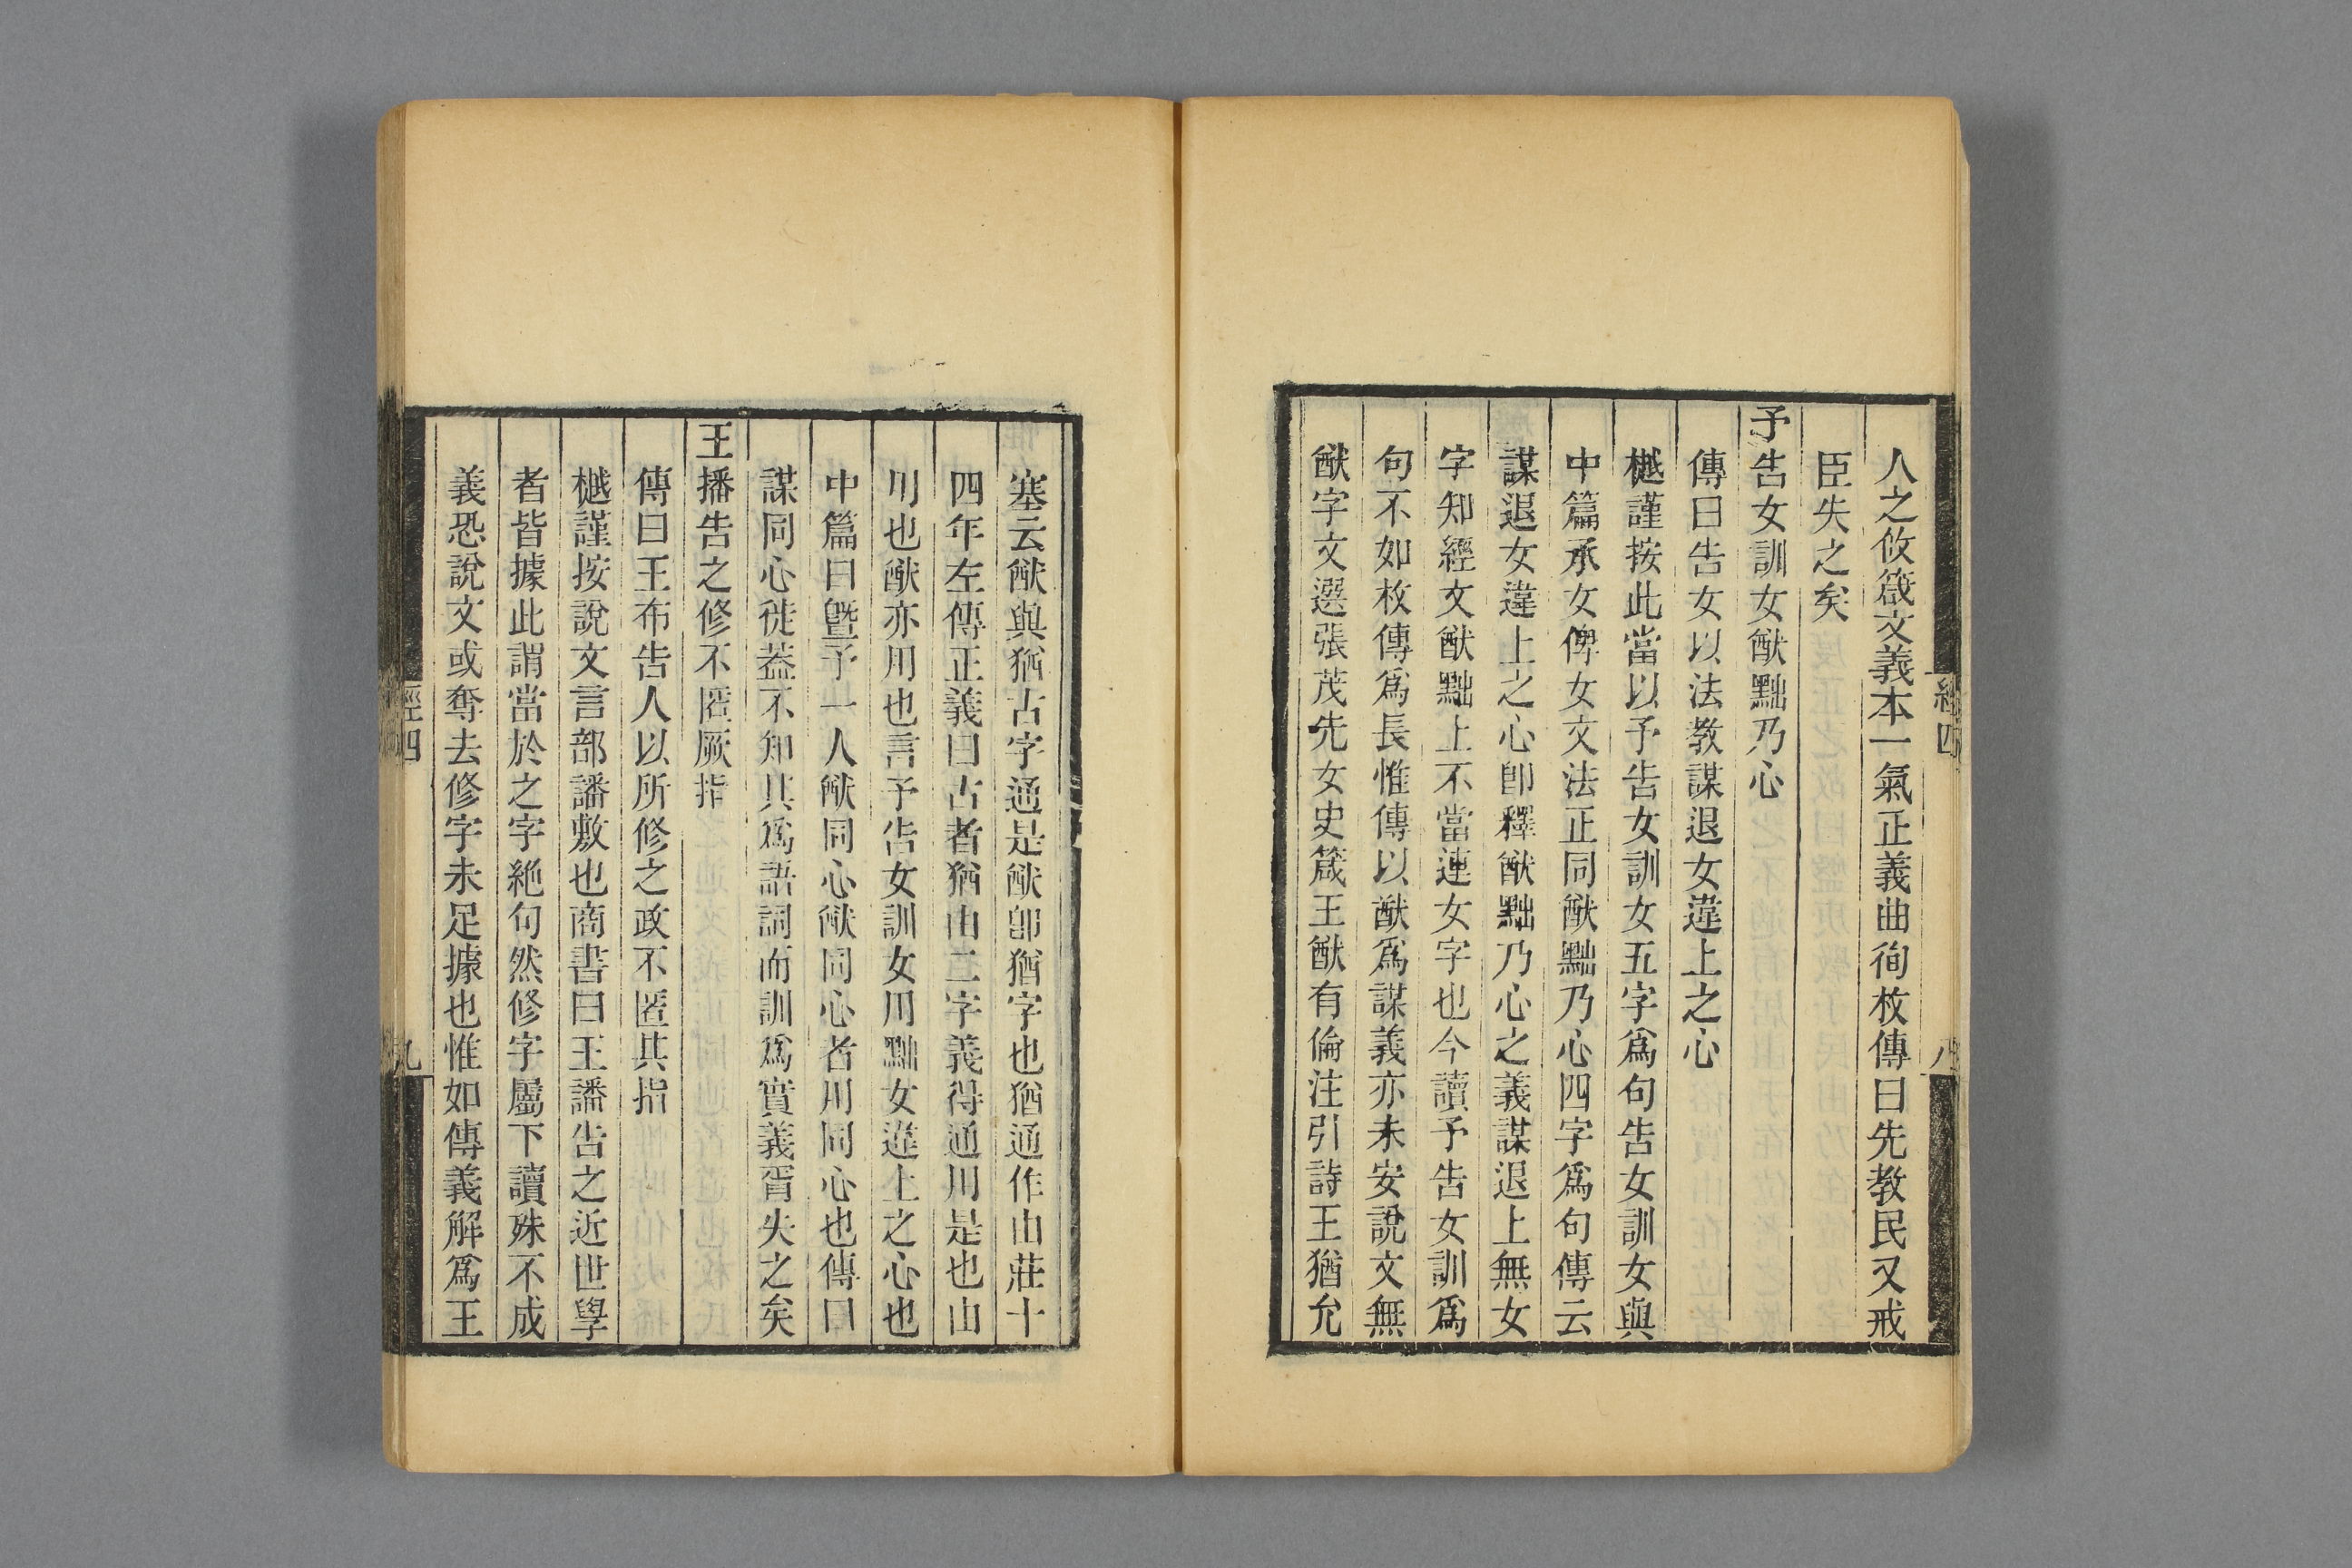 經四
八
人之攸箴文義本一氣正義曲徇枚傳曰先教民又戒
臣失之矣
予告女訓女猷黜乃心
傳曰告女以法教謀退女違上之心
樾謹按此當以予告女訓女五字爲句告女訓女與
中篇承女俾女文法正同猷黜乃心四字爲句傳云
謀退女違上之心卽釋猷黜乃心之義謀退上無女
字知經文猷黜上不當連女字也今讀予告女訓爲
句不如枚傳爲長惟傳以猷爲謀義亦未安說文無
猷字文選張茂先女史箴王猷有倫注引詩王猶允
塞云猷與猶古字通是猷卽猶字也猶通作由莊十
四年左傳正義曰古者猶由二字義得通用是也由
用也猷亦用也言予告女訓女用黜女違上之心也
中篇曰曁予一人猷同心猷同心者用同心也傳曰
謀同心徒葢不知其爲語詞而訓爲實義胥失之矣
王播告之修不匿厥指
傳曰王布告人以所修之政不匿其指
樾謹按說文言部譒敷也商書曰王譒告之近世學
者皆據此謂當於之字絶句然修字屬下讀殊不成
義恐說文或奪去修字未足據也惟如傳義解爲王
經四
九